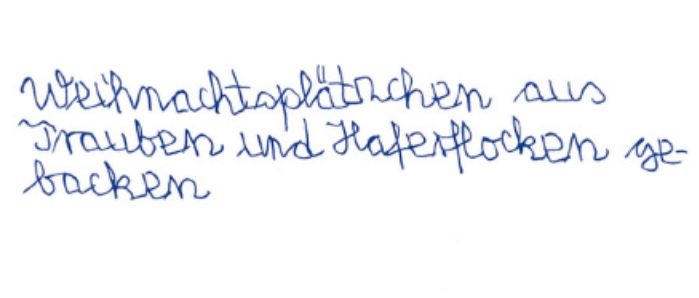 Weihnachtsplätzchen aus
Trauben und Haferflocken ge-
backen